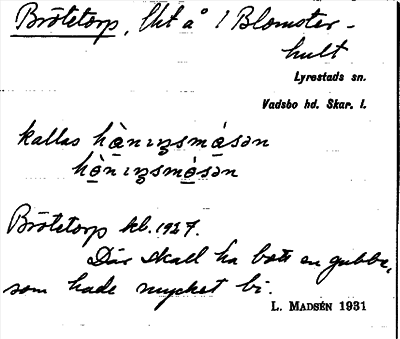 Brötetorp, lht å 1 Blomster-
hult
Lyrestads sn.
Vadsbo hd. Skar. l.
kallas hä̀nıŋsmósən
hä̀nıŋsmósən
Brötetorp kb. 1927.
Där skall ha bott en gubbe,
som hade mycket bi.
L. MADSÉN 1931